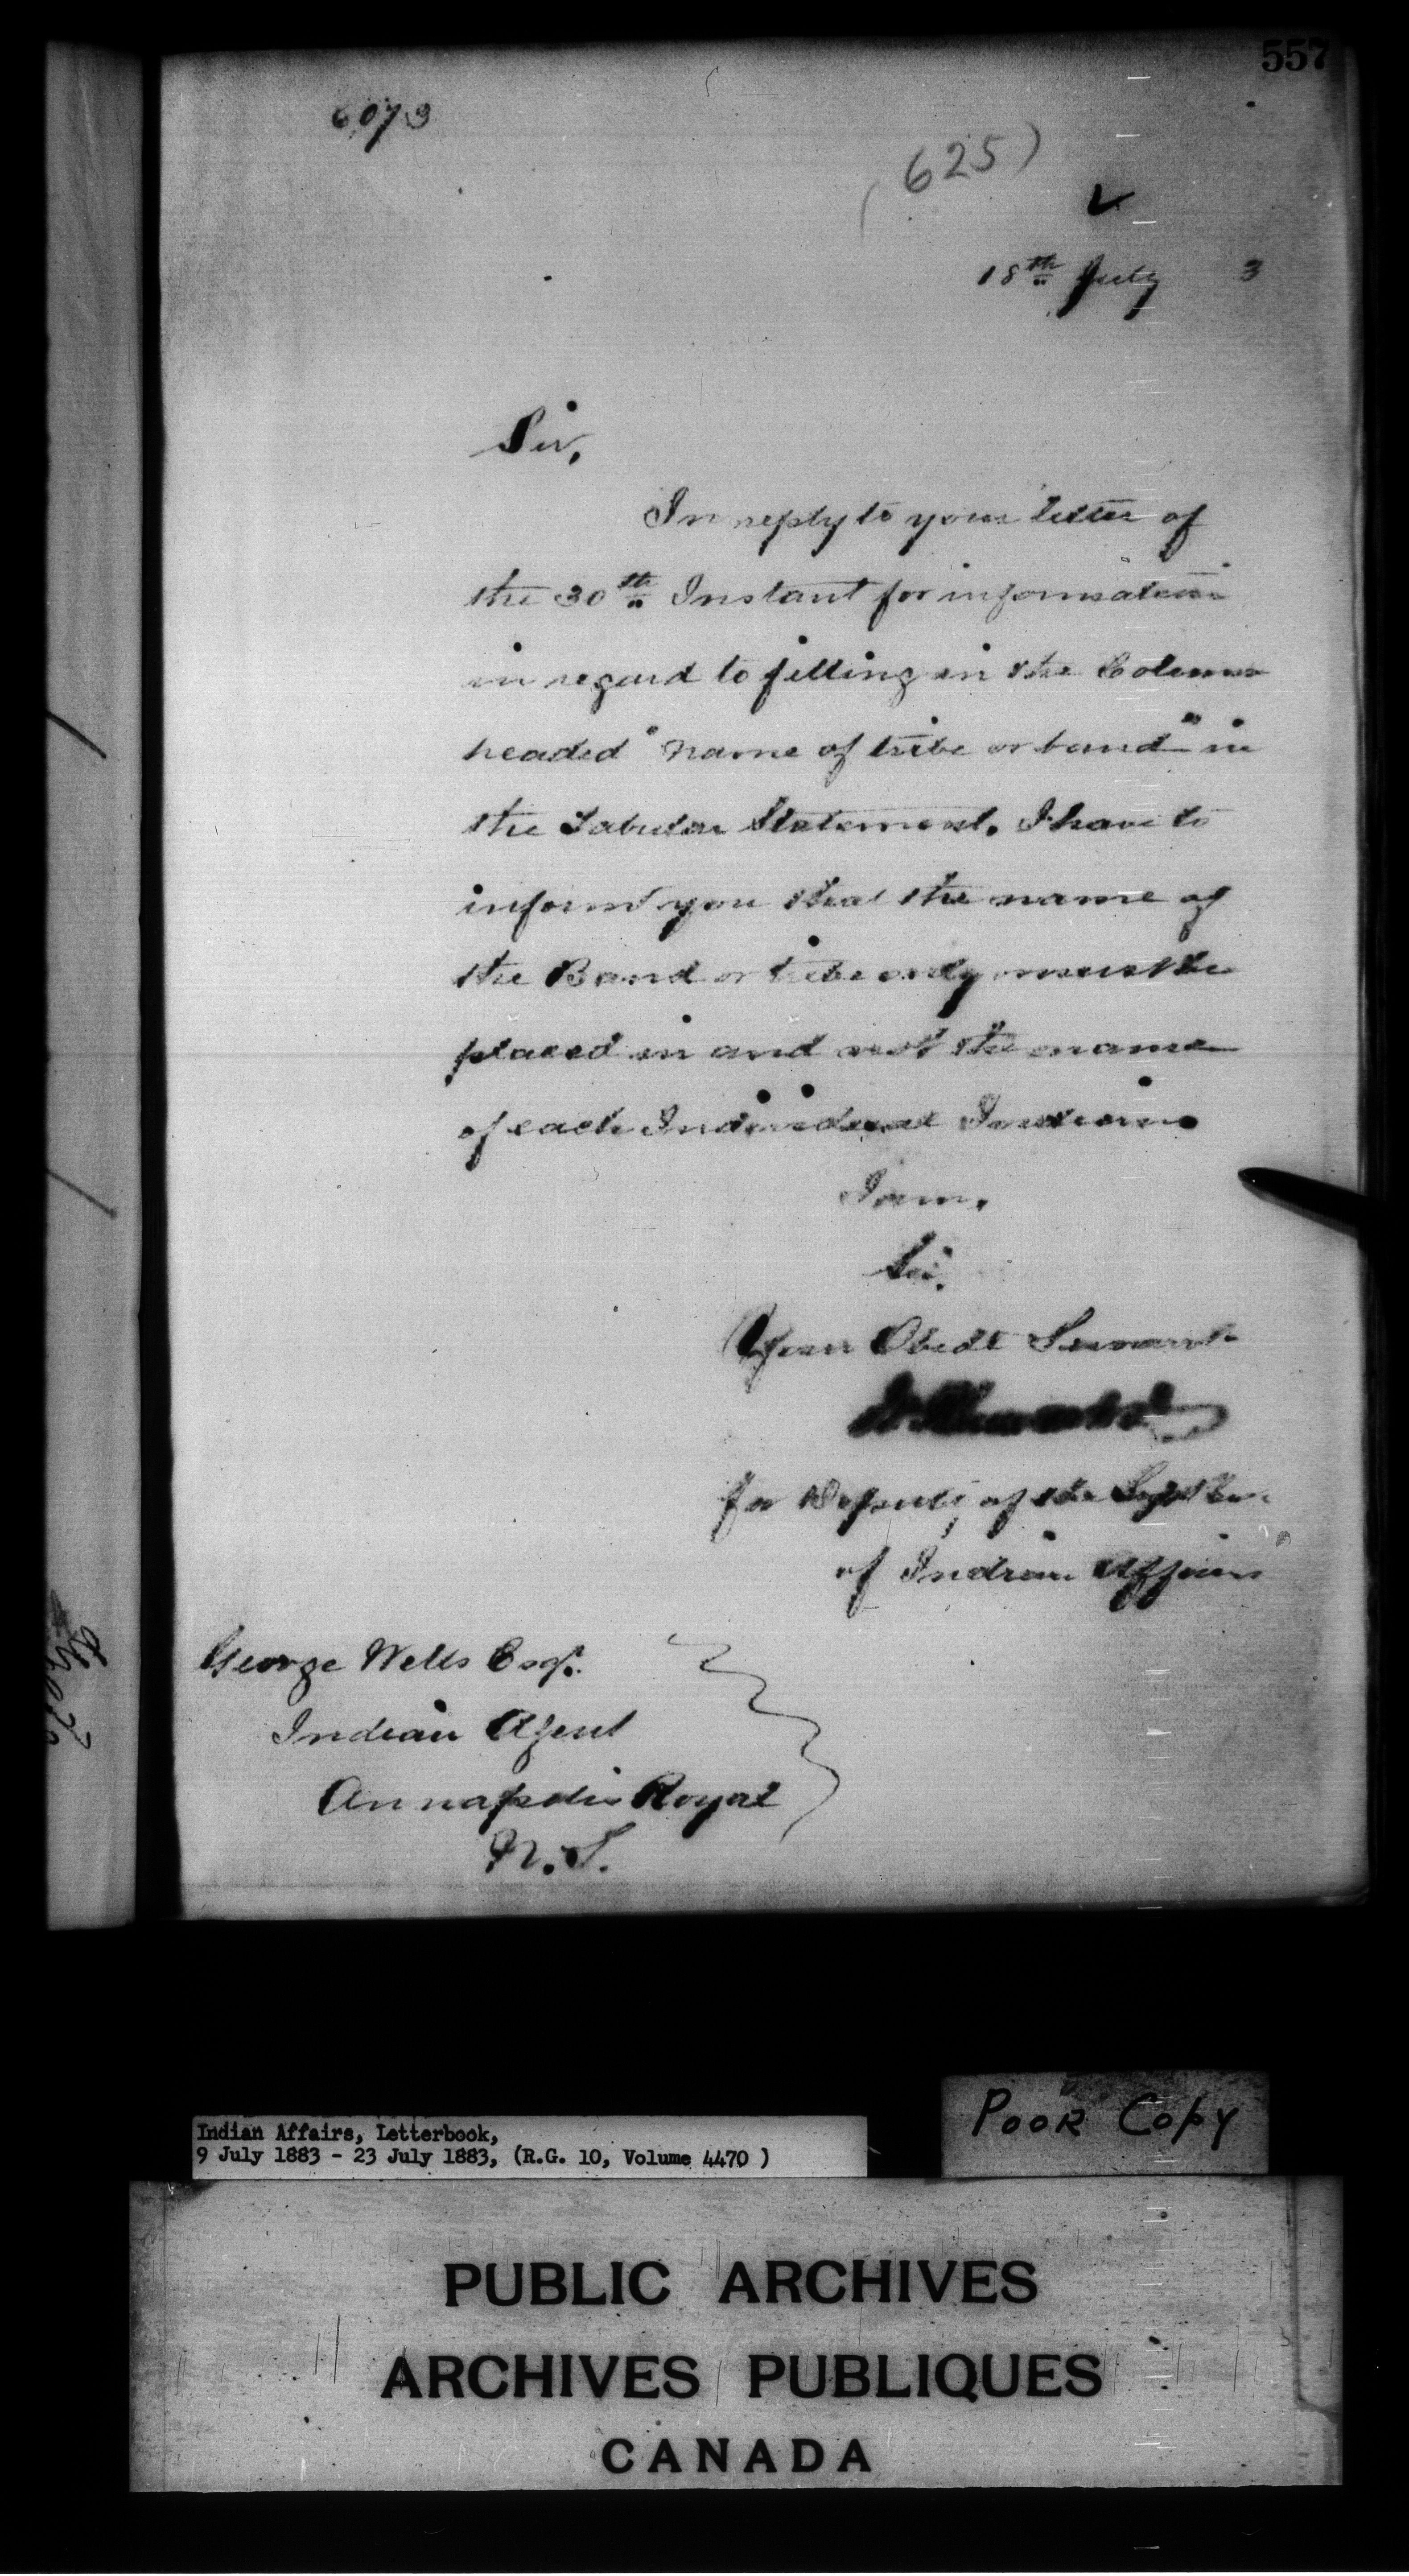 557
6073
(625)
18th July 3
Sir,
In reply to your letter of
the 30th Instant for information
in regard to filling in the Column
headed "name of tribe or band" in
the Tabular Statement. I have to
inform you that the name of
the Band or tribe only must be
placed in and not the name
of each Individual Indian.
I am,
Sir,
Your Obedt Servant
for Deputy of the Supt
of Indian Affairs
George Wells Esqr.
Indian Agent
Annapolis Royal
N.S.
POOR COPY
Indian Affairs, Letterbook,
9 July 1883 - 23 July 1883, (R.G. 10, Volume 4470 )
PUBLIC ARCHIVES
ARCHIVES PUBLIQUES
CANADA